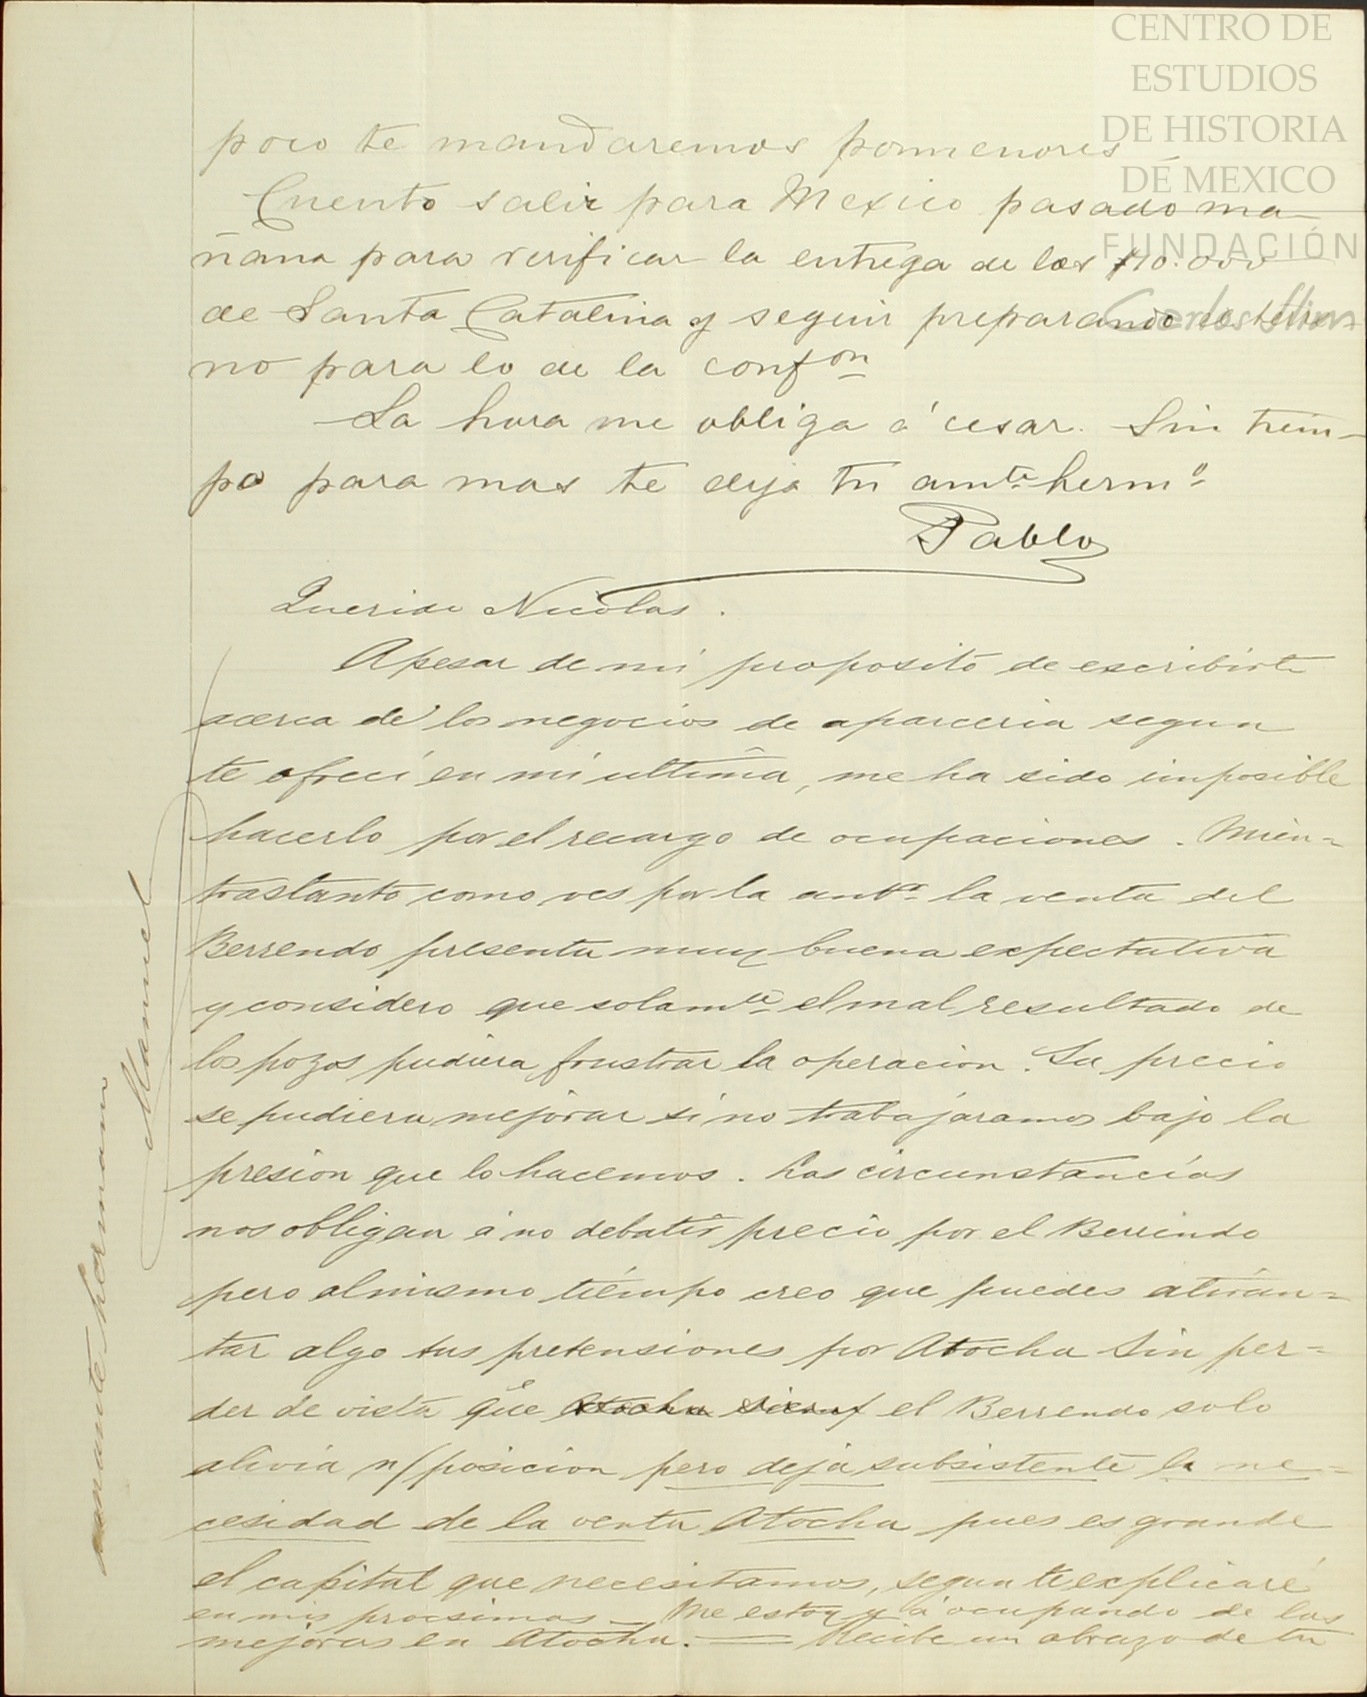 CENTRO DE
ESTUDIOS
DE HISTORIA
DE MEXICO
FUNDACIÓN
Carlos Slim
poco te mandaremos pormenores
Cuento salir para Mexico pasado ma-
ñana para verificar la entrega de los
de Santa Catalina y seguir preparando el terre-
no para lo de la confon
La hora me obliga á cesar. Sin tiem-
po para mas te deja tu amte hermo
Pablo
Querido Nicolas.
Apesar de mi proposito de escribirte
acerca de los negocios de aparceria segun
te ofrecí en mi ultima, me ha sido imposible
hacerlo por el recargo de ocupaciones. Mien=
trastanto como ves por la antr la venta del
Berrendo presenta muy buena expectativa
y considero que solamte el mal resultado de
los pozos pudiera frustrar la operacion. Su precio
se pudiera mejorar si no trabajaramos bajo la
presion que lo hacemos. Las circunstancias
nos obligan á no debatir precio por el Berrendo
pero al mismo tiempo creo que puedes atiran=
tar algo tus pretensiones por Atocha sin per=
der de vista que el Berrendo solo
alivia n/ posicion pero deja subsistente la ne=
cesidad de la venta Atocha pues es grande
el capital que necesitamos, segun te explicaré
en mis procsimas — Me estoy ya ocupando de las
mejoras en Atocha. — Recibe un abrazo de tu
amante hermano
Manuel